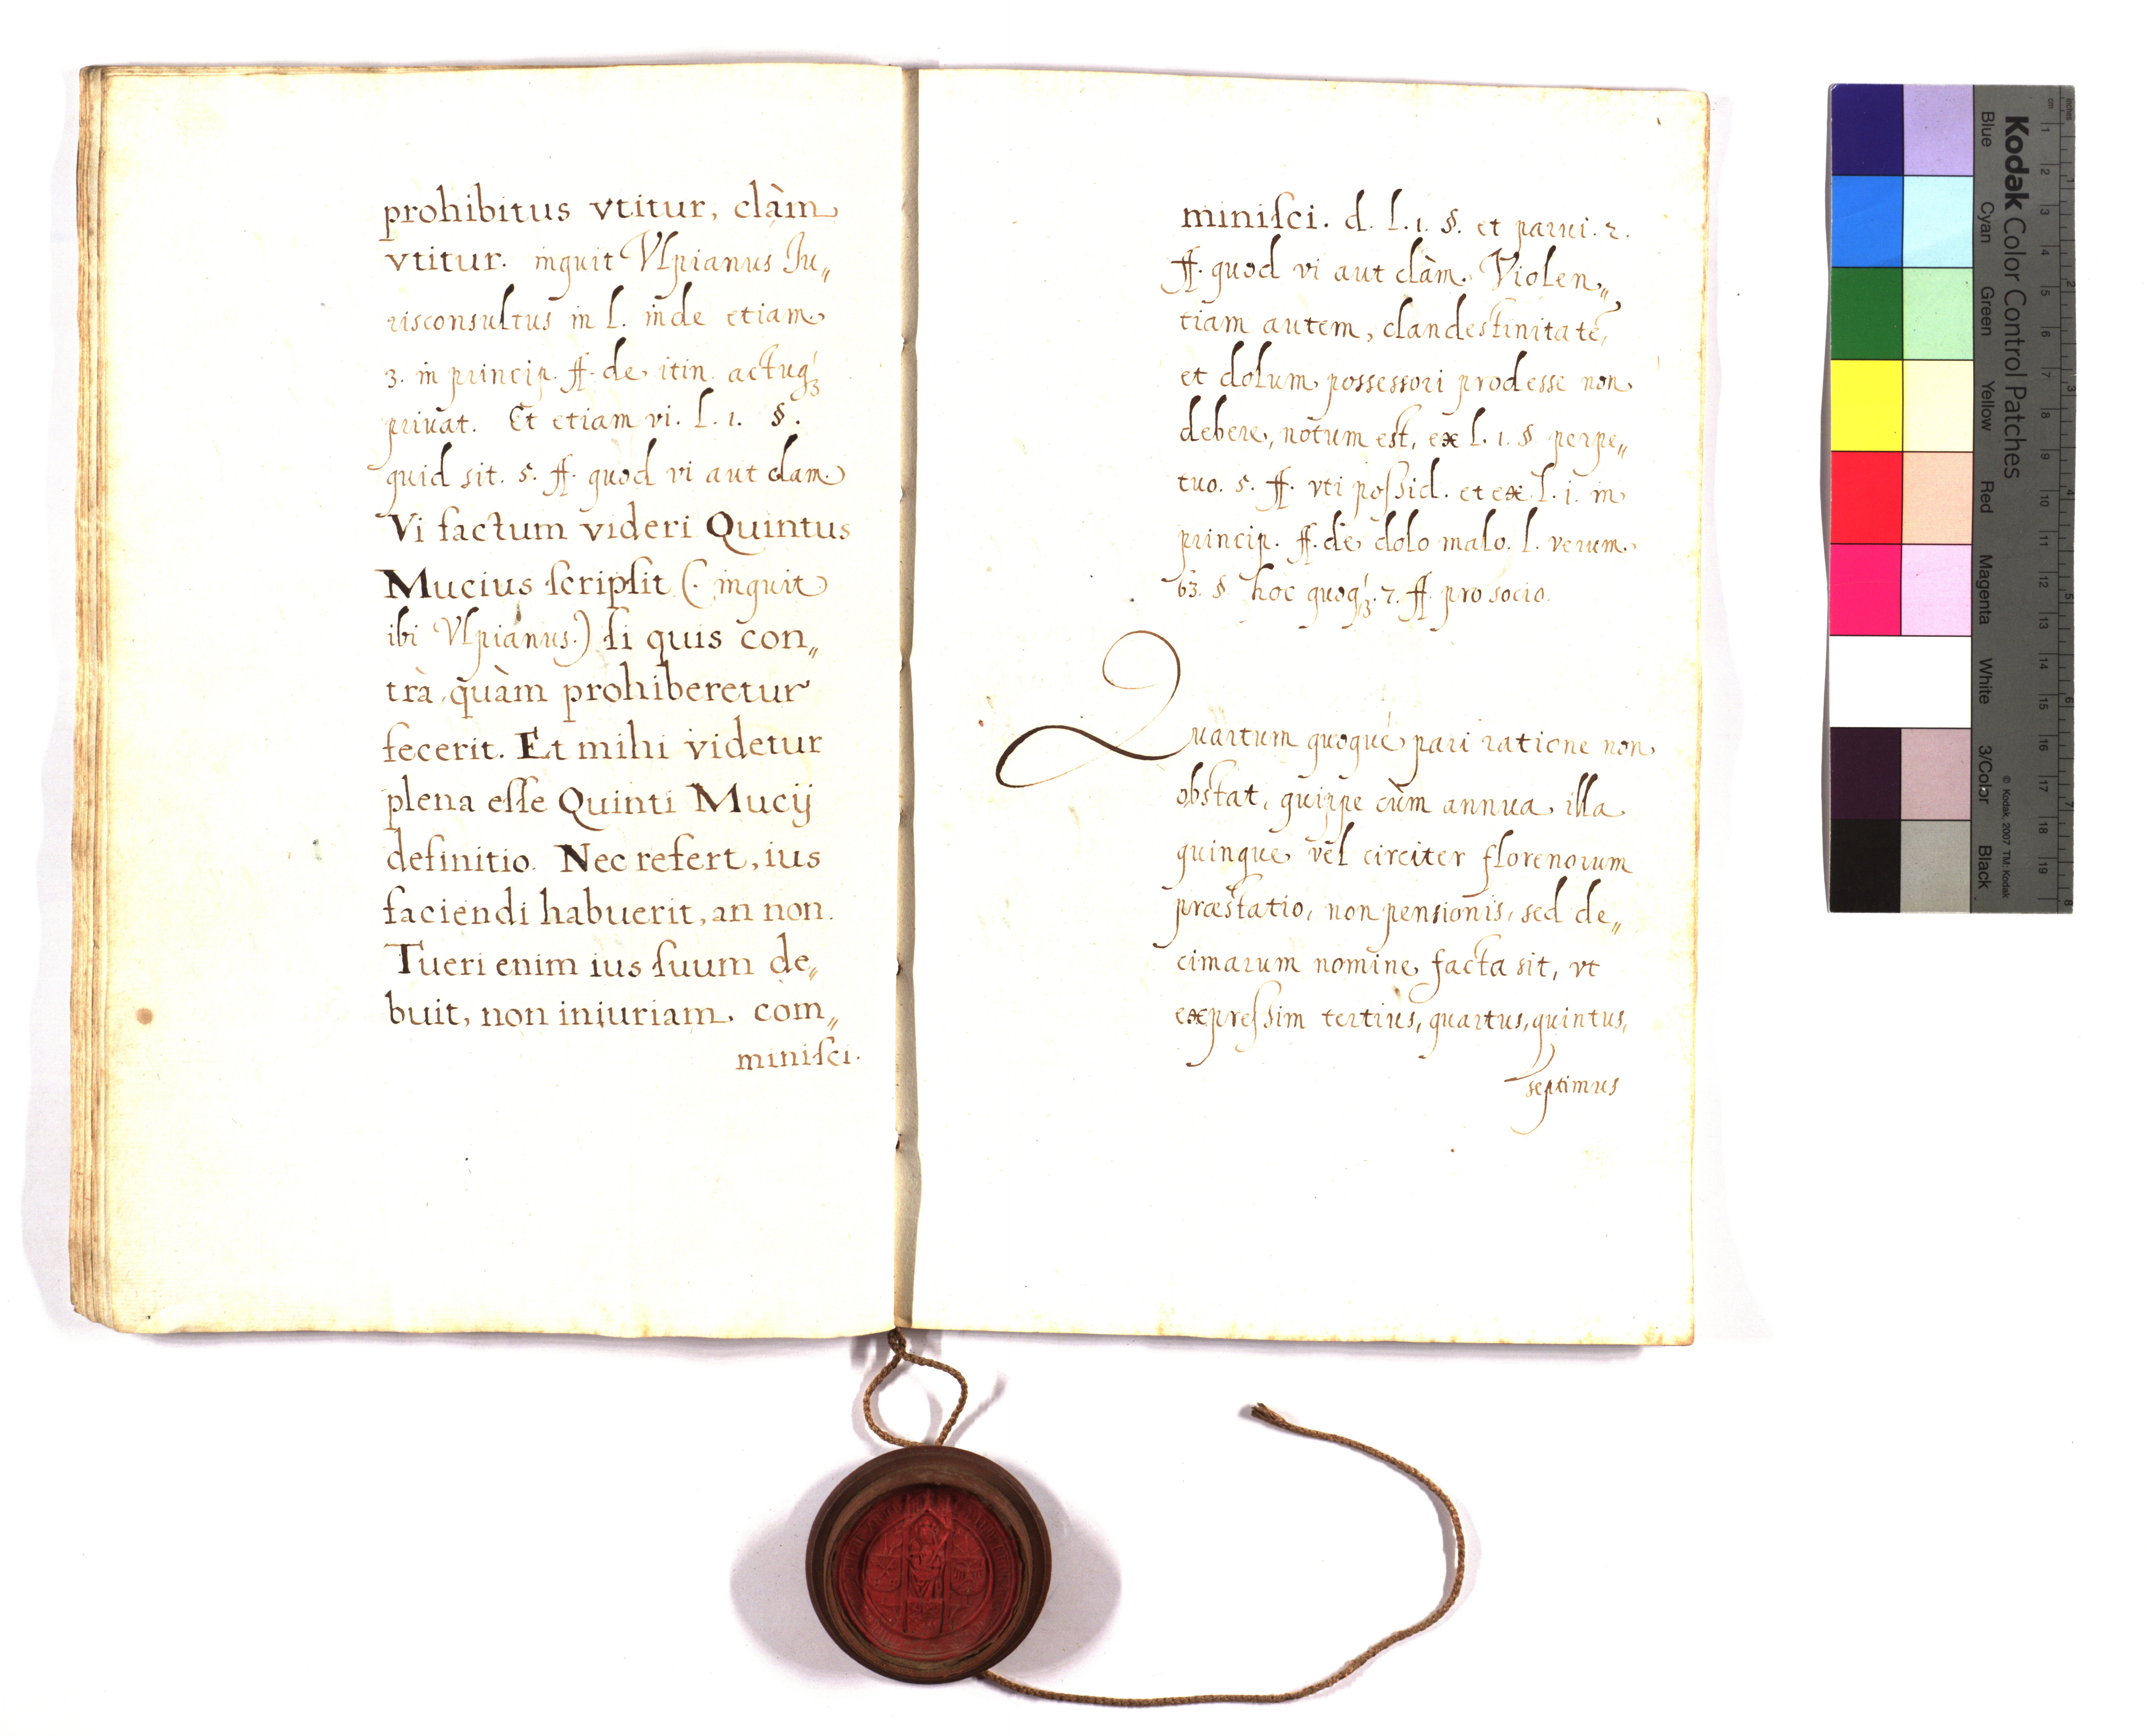 prohibitus vtitur, clàm
vtitur. inquit Vlpianus Iu„
risconsultus in l. inde etiam
3. in princip. ff. de itin. actuq́ꝫ
priuat. Et etiam vi. l. 1. §.
quid sit. 5. ff. quod vi aut clam.
Vi factum videri Quintus
Mucius ſcripſit (. inquit
ibi Vlpianus.) ſi quis con„
trà, quàm prohiberetur
fecerit. Et mihi videtur
plena eſſe Quinti Mucij
definitio. Nec refert, ius
faciendi habuerit, an non.
Tueri enim ius ſuum de„
buit, non iniuriam com„
miniſci.
miniſci. d. l. 1. §. et parui. 2.
ff. quod vi aut clàm. Violen„
tiam autem, clandestinitatẽ,
et dolum possessori prodesse non
debere, notum est, ex l. 1. §. perpe„
tuo. 5. ff. vti poſsid. et ex l. 1. in
princip. ff. de dolo malo. l. verum.
63. § hoc quoq́ꝫ. 7. ff. pro socio.
Quartum quoque pari ratione non
obstat, quippe cùm annua illa
quinque vel circiter florenorum
præstatio, non pensionis, sed de„
cimarum nomine facta sit, vt
expreſsim tertius, quartus, quintus,
septimus
Kodak Color Control Patches
Blue Cyan Green Yellow Red Magenta White 3/Color Black
© Kodak, 2007 TM: Kodak
cm 1 2 3 4 5 6 7 8 9 10 11 12 13 14 15 16 17 18 19
inches 1 2 3 4 5 6 7 8